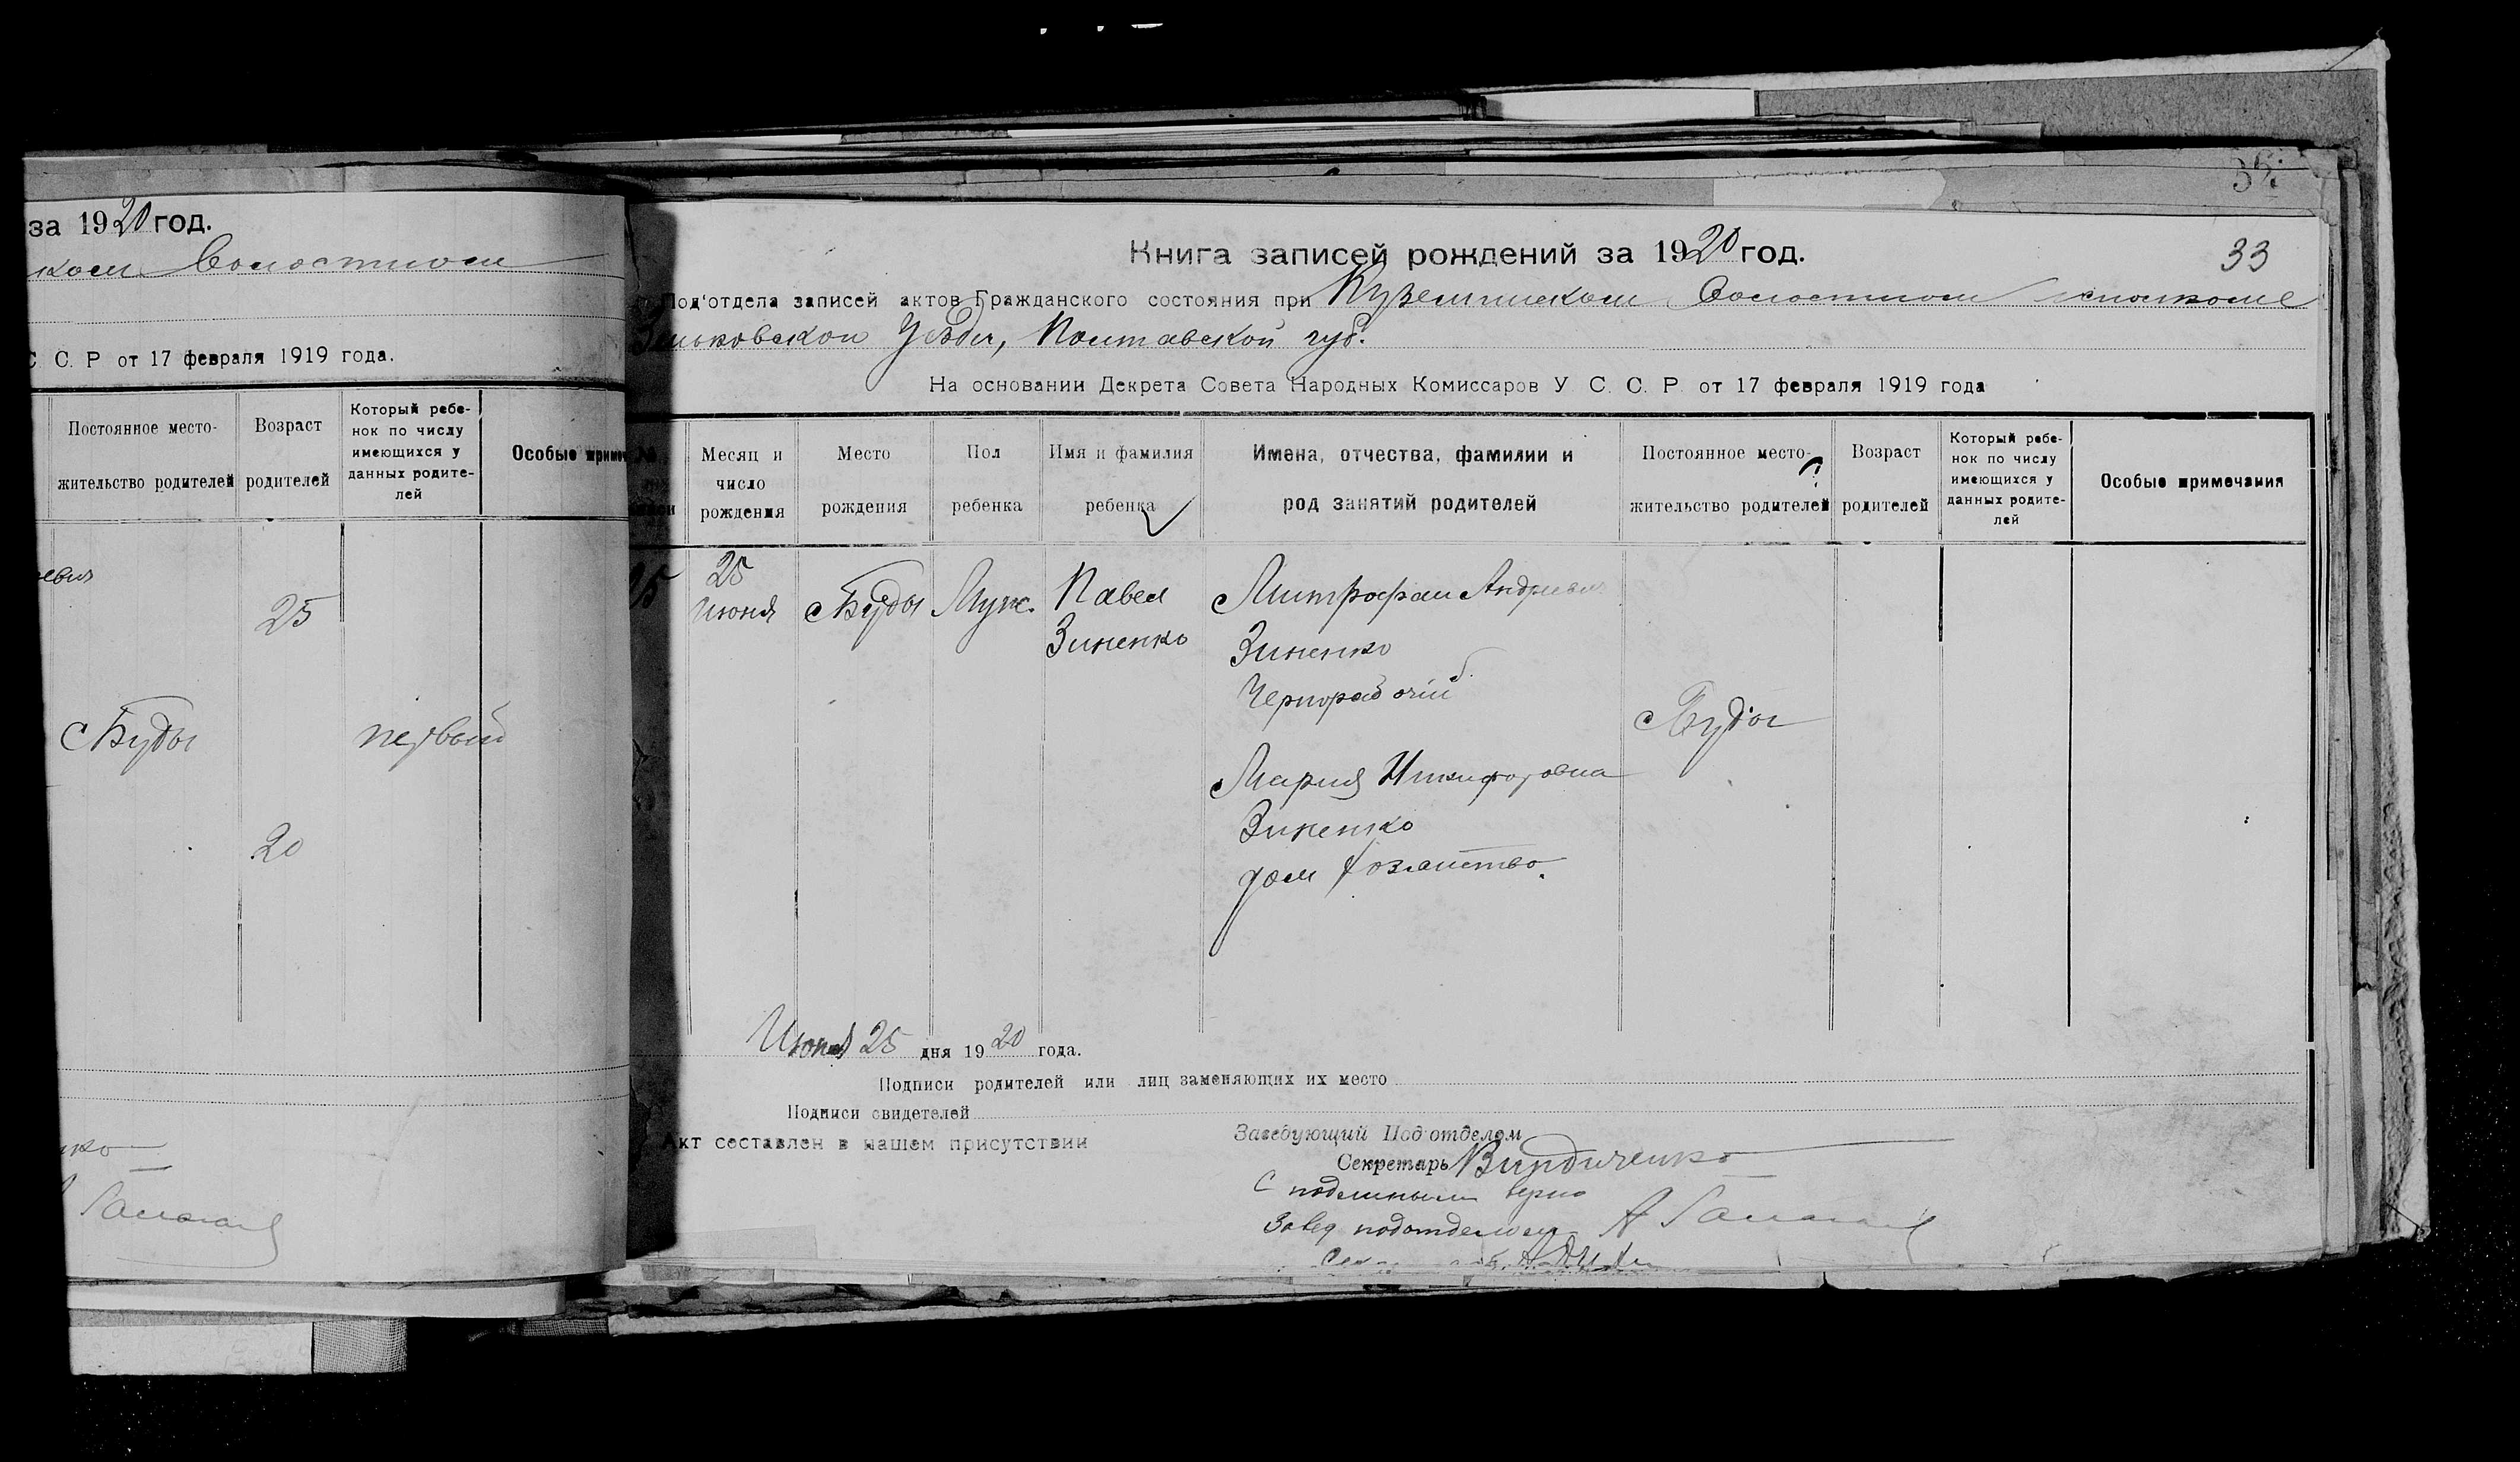 за 1920 год.
ком Волостном
С. С. Р от 17 февраля 1919 года.
Постоянное место-
жительство родителей
Возраст
родителей
Который ребе-
нок по числу
имеющихся у
данных родите-
лей
Особые
25
с Буды
первый
20
нко
33
Книга записей рождений за 1920 год.
Под'отдела записей актов Гражданского состояния при Куземинском Волостном исполкоме
Зеньковского Уезда, Полтавской губ.
На основании Декрета Совета Народных Комиссаров У С. С. Р. от 17 февраля 1919 года
№
Месяц и
число
рождения
Место
рождения
Пол
ребенка
Имя и фамилия
ребенка
Имена, отчества, фамилии и
род занятий родителей
Постоянное место-
жительство родителей
Возраст
родителей
Который ребе-
нок по числу
имеющихся у
данных родите-
лей
Особые примечания
25
Июня
с Буды
Муж.
Павел
Зиненко
Митрофан
Зиненко
Чернорабочій
Мария Никифоровна
Зиненко
дом хозяйство.
с Буды
Июня 25 дня 1920 года.
Подписи родителей или лиц заменяющих их место
Подписи свидетелей
Акт составлен в нашем присутствии
Заведующий Под'отделом
Секретарь
С подлинным верно
Завед подотделом